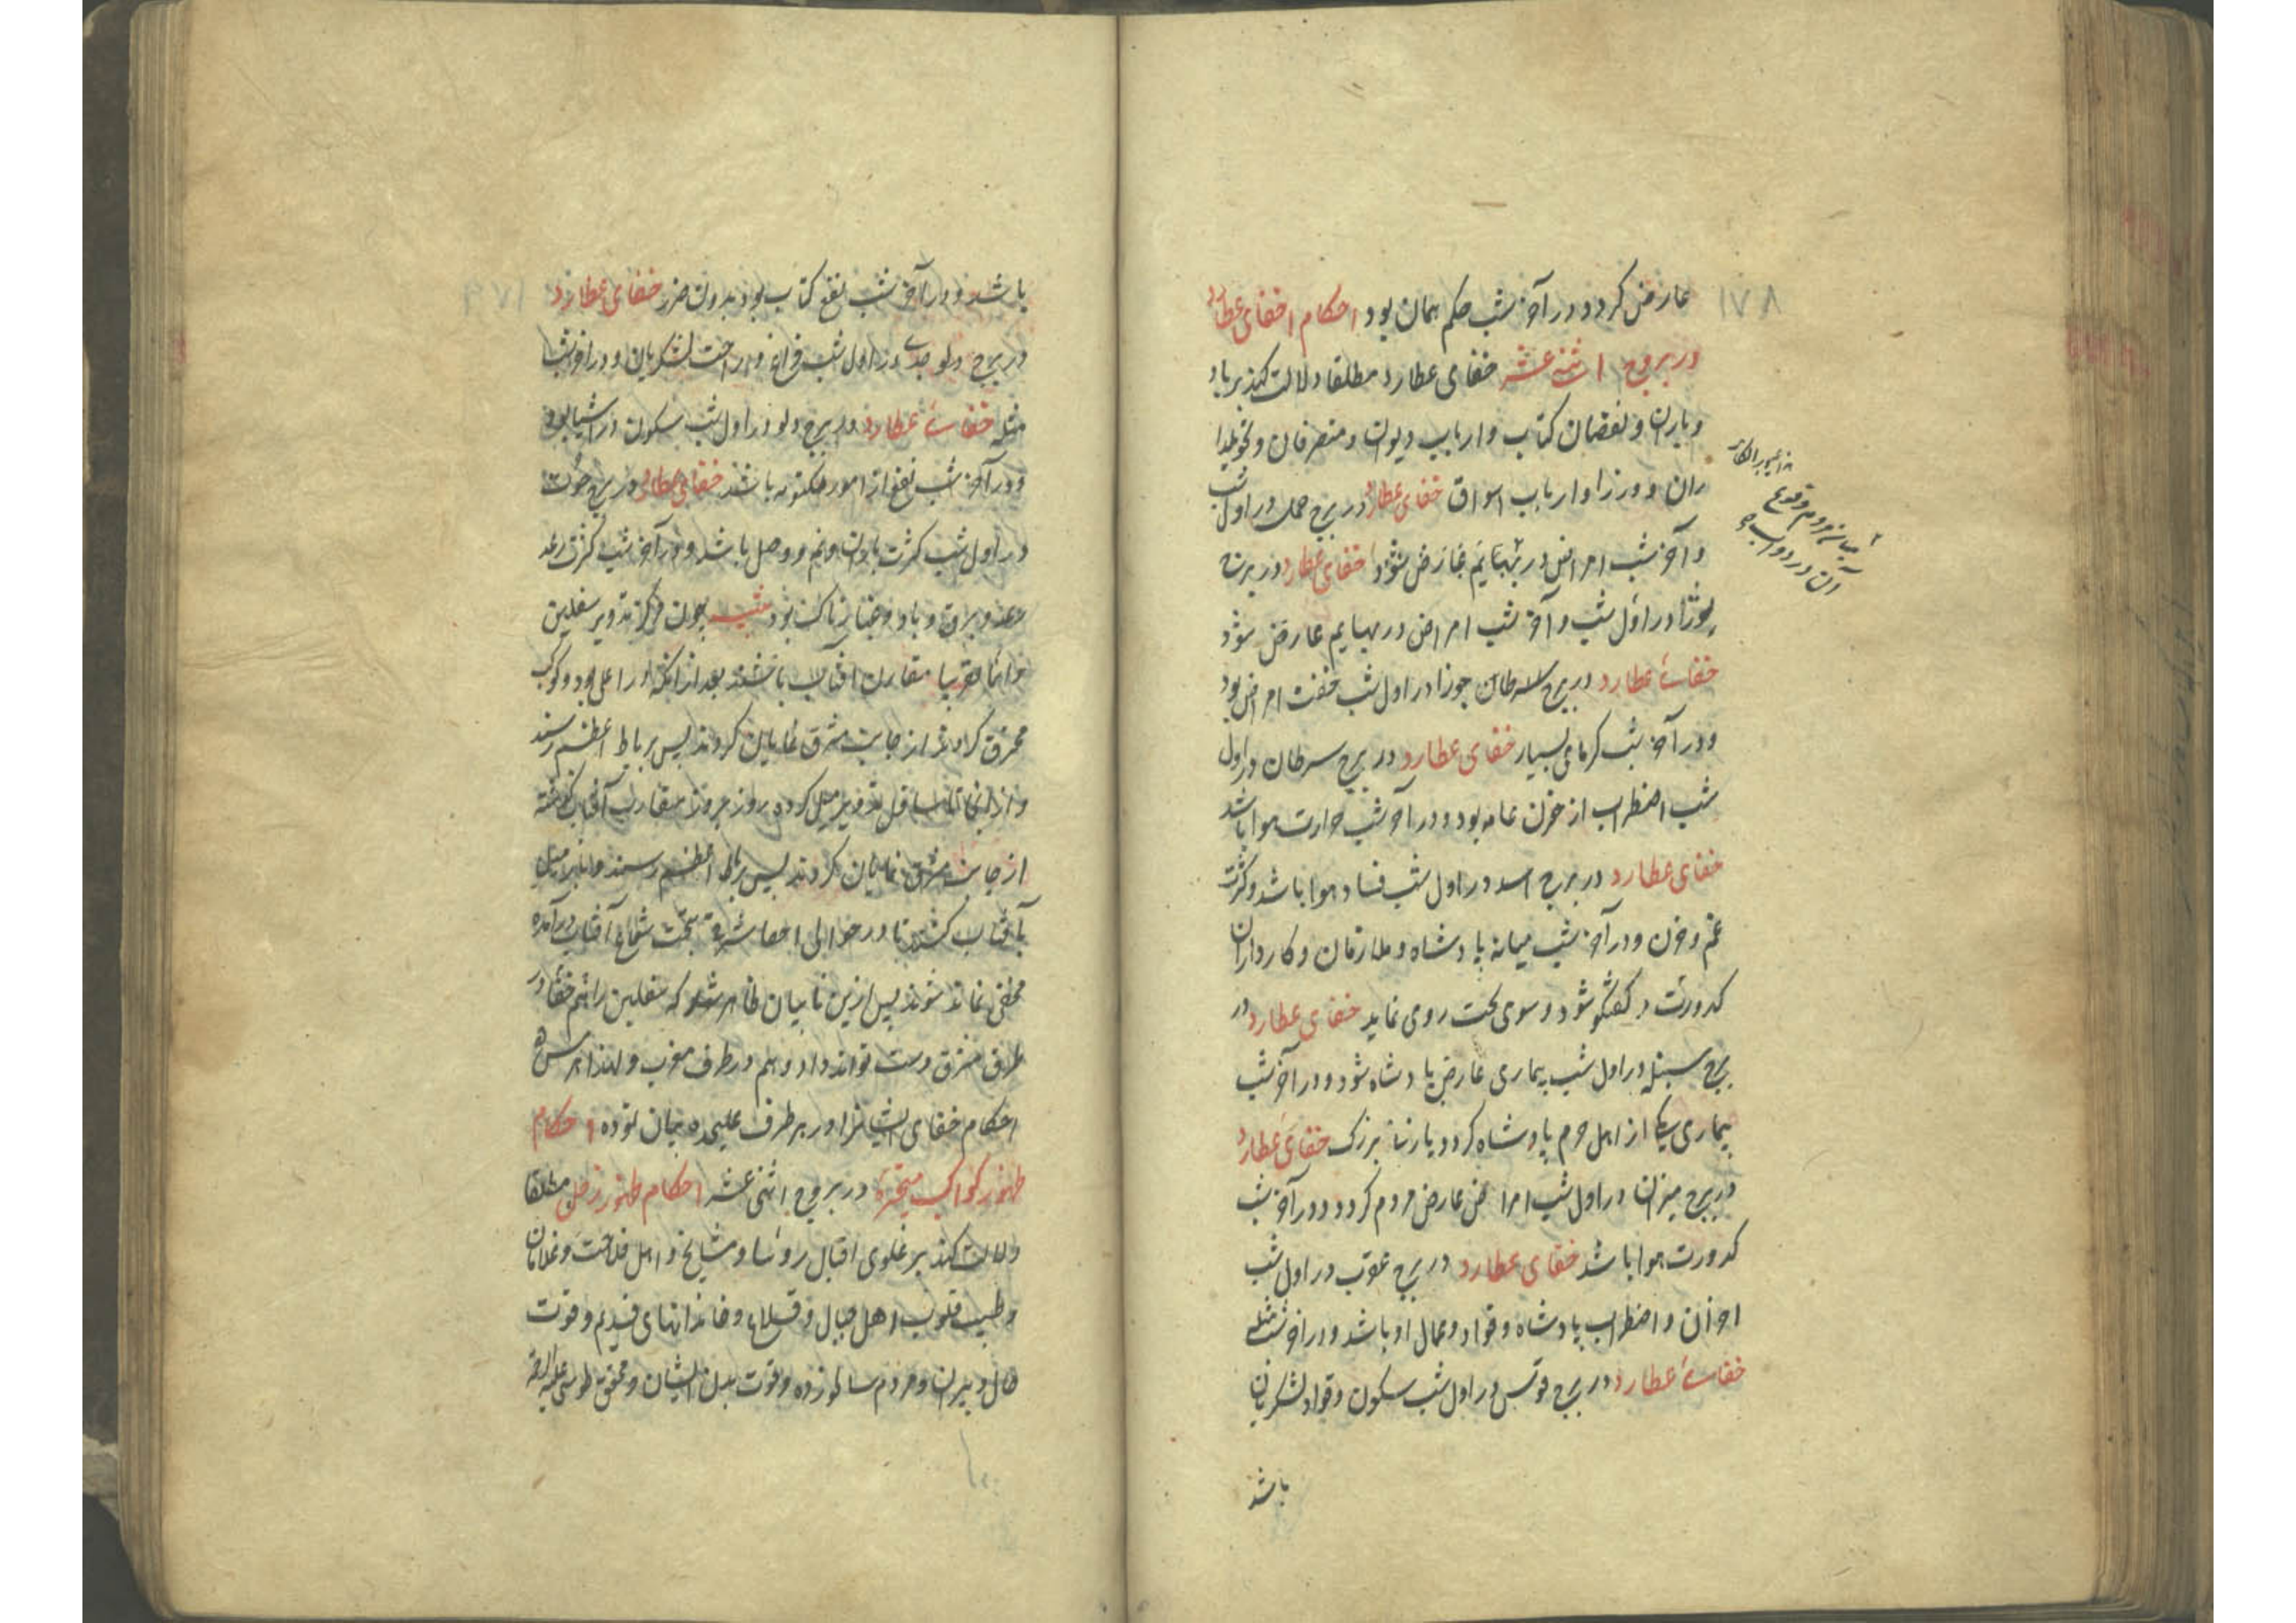 عارض کردد و در آخر شب حکم همان بود احکام اخفای عطارد
در بروج اثنی عشر خفای عطارد مطلقا دلالت کند بر باد
و باران و نقصان کتاب و ارباب دیوان و متصرفان و تحویلدا
ران و وزرا و ارباب اسواق خفای عطارد در برج حمل در اول شب
و آخر شب امراض در بهایم عارض شود خفای عطارد در برج
در اول شب و آخر شب امراض در بهایم عارض شود
خفای عطارد در برج سرطان جوزا در اول شب خفت امراض بود
و در آخر شب کرمای بسیار خفای عطارد در برج سرطان در اول
شب اضطراب از حزن عامه بود و در آخر شب حرارت هوا باشد
خفای عطارد در برج اسد در اول شب فساد هوا باشد و کثرت
غم و حزن و در آخر شب میانه پادشاه و ملازمان و کارداران
کدورت و کفتگو شود و سوی محبت روی نماید خفای عطارد در
برج سنبله در اول شب بیماری عارض پادشاه شود و در آخر شب
بیماری یکی از اهل حرم پادشاه کردد یا زنان بزرک خفای عطارد
در برج میزان در اول شب امراض عارض مردم کردد و در آخر شب
کدورت هوا باشد خفای عطارد در برج عقرب در اول شب
احزان و اضطراب پادشاه و قواد و عمال او باشد و در آخر شب مثله
خفای عطارد در برج قوس در اول شب سکون و قواد لشکریان
باشد
۱۷۸
باشد و در آخر شب نفع کتاب بود بدون ضرر خفای عطارد
در برج دلو جدی در اول شب فراغ و راحت لشکریان و در آخر شب
مثله خفای عطارد در برج دلو در اول شب سکون در اشیا بود
و در آخر شب نفع از امور مکتومه باشد خفای عطارد در برج حوت
در اول شب کثرت باران و نم و وحل باشد و در آخر شب کثرت رعد
و برق و باد و هوا بود چون مرکز تدویر سفلیین
دائما تقریبا مقارن آفتاب باشند بعد از آنکه در اعلی بود و کوکب
محترق کردد از جانب مشرق نمایان کردند پس برباط اعظم رسند
و از آنجا تا اسافل تدویر میل کرده روز بروز مقارب آفتاب کشته
از جانب مشرق نمایان کردند پس برباط اعظم رسند و میل
بآفتاب کشند تا در حوالی تحت شعاع آفتاب درآمده
مخفی شوند پس ازین بیان ظاهر شد که سفلیین را هم خفا در
طرف مشرق دست تواند داد و هم در طرف مغرب و لهذا
احکام خفای ایشانرا در هر طرف علیحده بیان نموده احکام
ظهور کواکب متحیره در بروج اثنی عشر احکام ظهور زحل مطلقا
دلالت کند بر علوی اقبال رؤسا و مشایخ و اهل فلاحت و غلامان
و طیب قلوب اهل جبال و قلاع و خاندانهای قدیم و قوت
حال دبیران و مردم سالخورده و قوت بدن ایشان و محقق طوسی علیه الرحمه